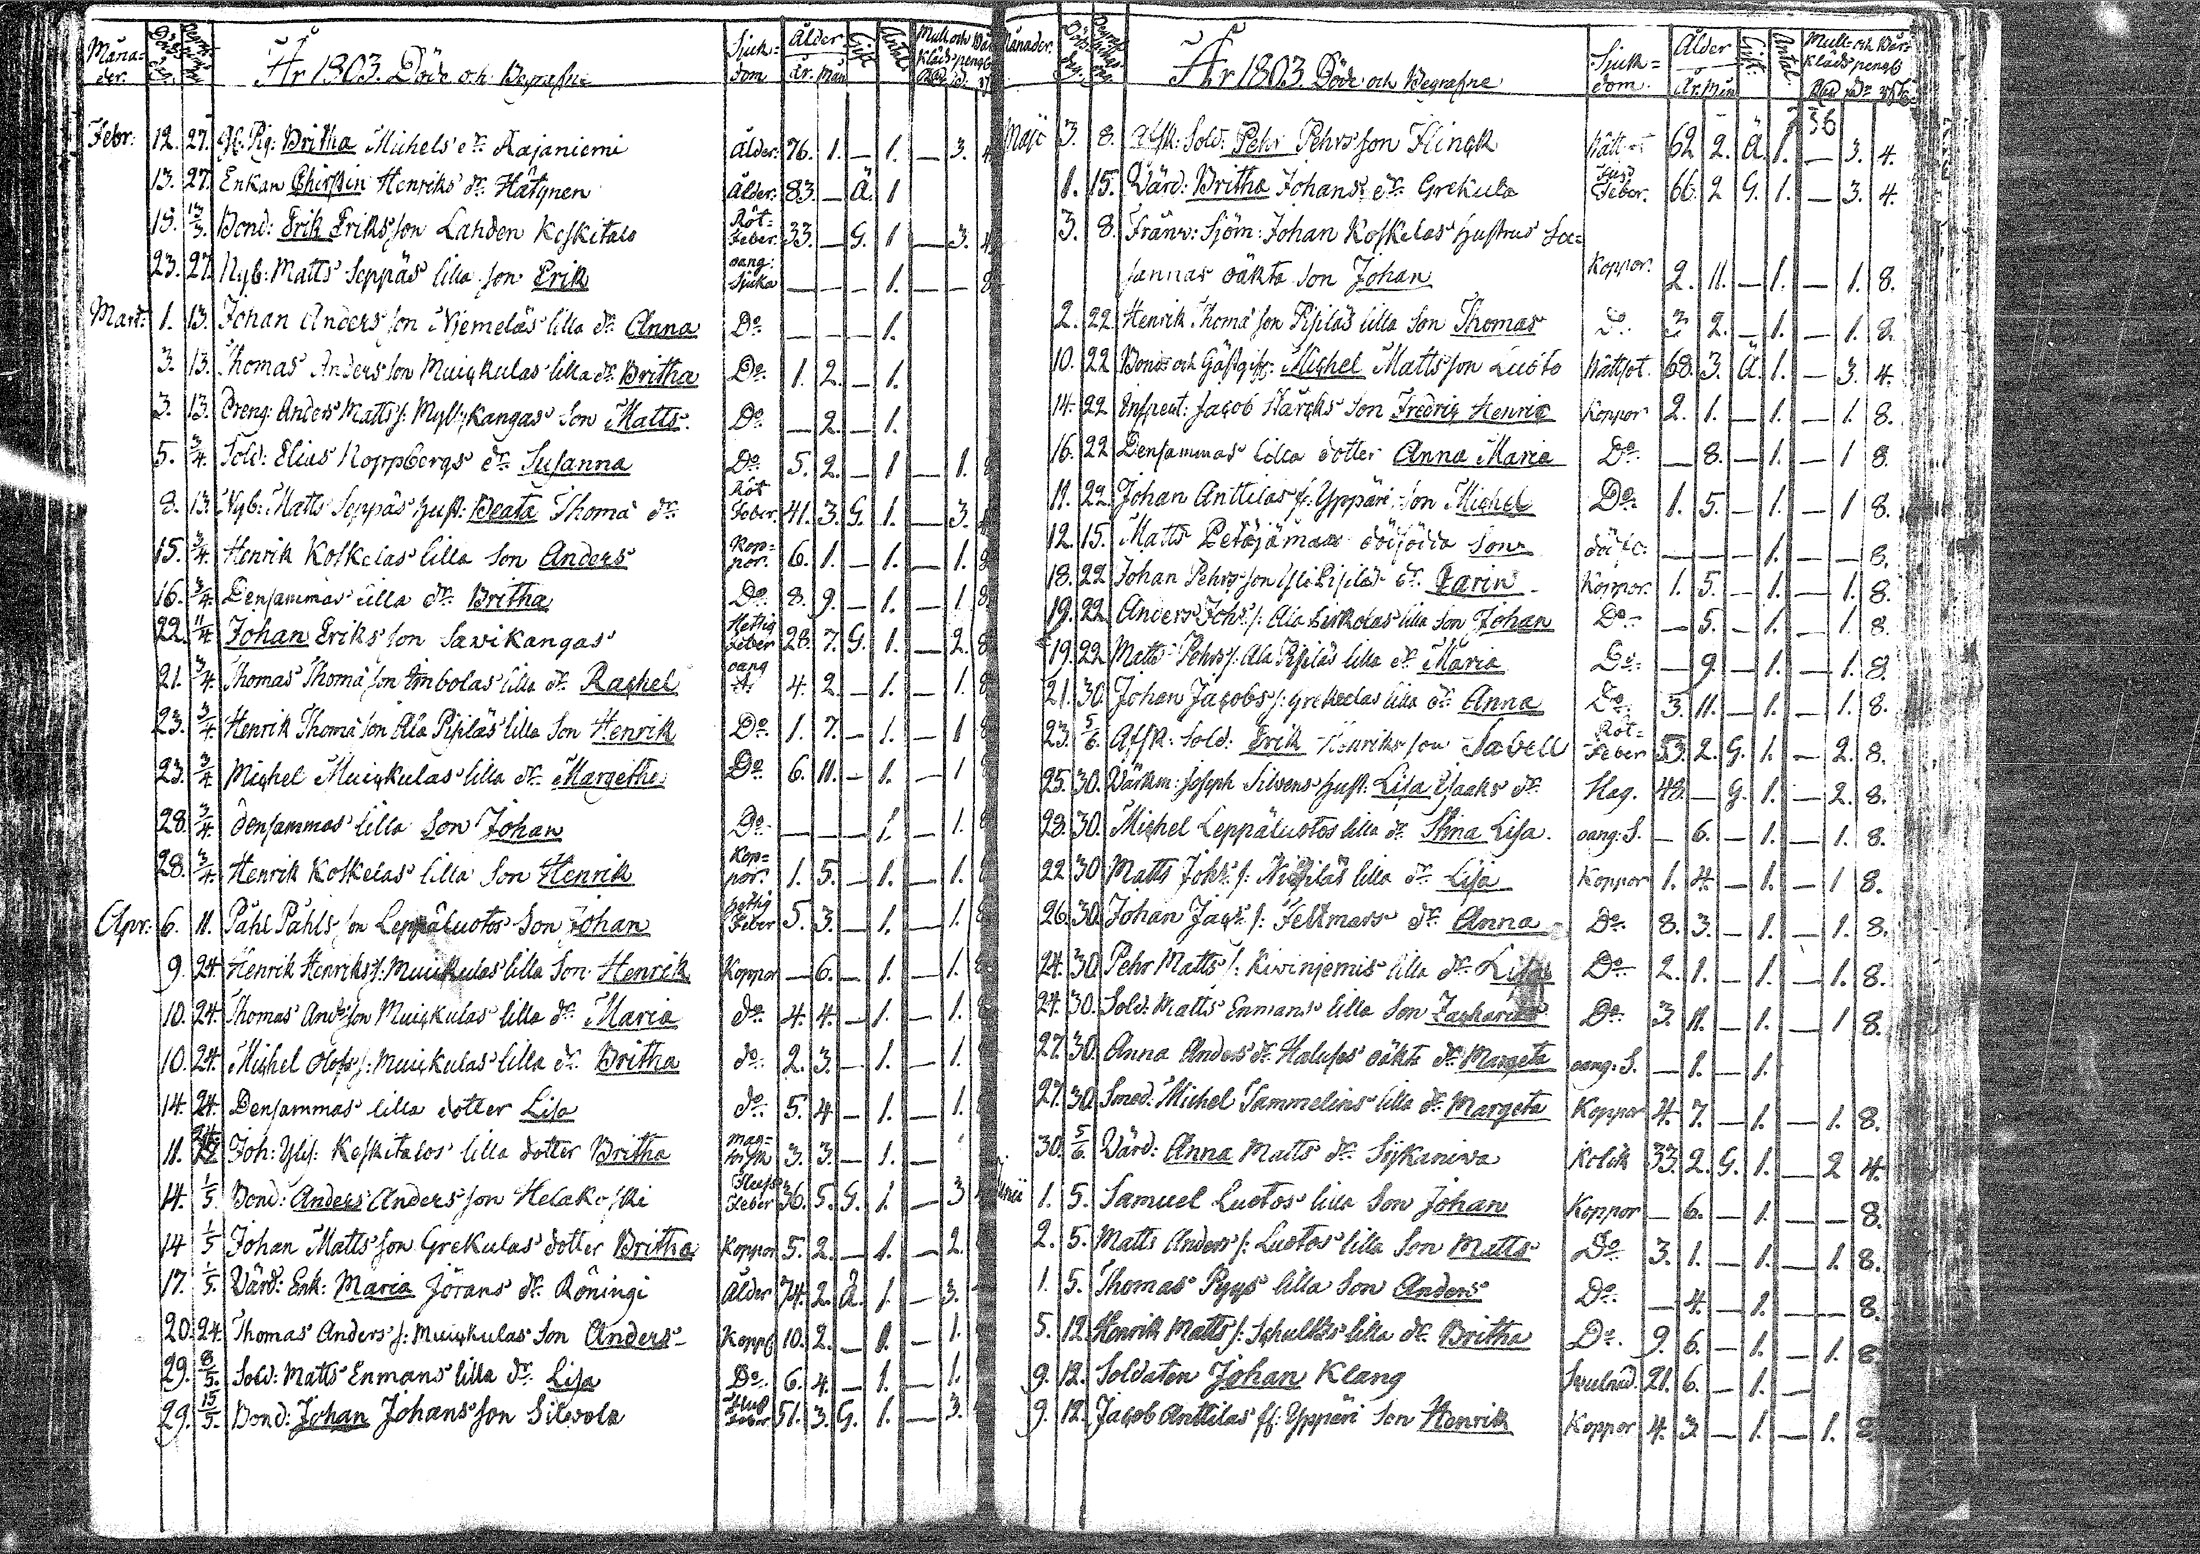 Måna- der. Döds dag. Begrafnings dag År 1803. Döde och Begrafne Sjuk- dom Ålder År. Mån Gift Antal Mull och Bår Kläds peng:
Febr: 12. 27. Gl: Pig: Britha Michels dr. Rajaniemi Ålder: 76. 1. — 1. — 3. 4
13. 27. Enkan Henriks dr. Hätynen Ålder: 83. — Ä. 1
15. 13/3. Bond: Erik Eriks son Lahden Koskitalo Röt- Feber. 33. — G. 1 — 3. 4
23. 27. Nyb: Matts Seppäs lilla son Erik oang: Sjuka — — — 1. — — 8
Mart: 1. 13. Johan Anders son Njemeläs lilla dr. Anna Do. — — — 1.
3. 13. Thomas Anders son Muickulas lilla dr. Britha Do. 1. 2. — 1.
3. 13. Dreng: Anders Matts s: Myllykangas son Matts. Do. — 2. — 1.
5. 3/4. Sold: Elias Koppbergs dr. Susanna Do. 5. 2. — 1 — 1. 8
8. 13. Nyb: Matts Seppäs hust: Beata Thoma dr. Röt Feber. 41. 3. G. 1. — 3.
15. 3/4. Henrik Koskelas lilla son Anders Kop- por. 6. 1. — 1. — 1. 8
16. 3/4. Densammas lilla dr. Britha Do. 8. 9. — 1. — 1. 8
22. 11/4 Johan Eriks son Sawikangas Hettig feber 28. 7. G. 1. — 2. 8
21. 3/4. Thomas Thoma son Embolas lilla dr. Rachel oang 4. 2. — 1. — 1. 8
23. 3/4. Henrik Thoma son Ala Pipiläs lilla son Henrik Do. 1. 7. — 1. — 1 8
23. 3/4 Michel Muickulas lilla dr. Margetha Do 6. 11. — 1. — 1
28. 3/4 densammas lilla son Johan Do. — — — 1. — 1. 8
28. 3/4. Henrik Koskelas lilla son Henrik Kop- por: 1. 5. — 1. — 1. 8
Apr: 6. 11. Påhl Påhls son Leppäluotos son Johan hetig Feber 5. 3. — 1. — 1.
9. 24. Henrik Henriks s: Muickulas lilla son Henrik Koppor — 6. — 1. — 1. 8
10. 24. Thomas And: son Muickulas lilla dr. Maria do. 4. 4. — 1. — 1. 8
10. 24. Michel Olofs s: Muickulas lilla dr. Britha do. 2. 3. — 1. — 1.
14. 24. Densammas lilla dotter Lisa do. 5. 4 — 1. — 1.
11. 24. Joh: Koskitalos lilla dotter Britha mag- 3. 3. — 1. —
14. 1/5. Bond: Anders Anders son Helakoski Feber 36. 5. G. 1. — 3
14 1/5 Johan Matts son Grekulas dotter Britha Koppor 5. 2. — 1. — 2.
17. 1/5. Värd: Enk: Maria Jörans dr. Röningi Ålder 74. 2. Ä. 1 — 3.
20. 24. Thomas Anders s: Muickulas son Anders Kopp 10. 2. — 1. — 1.
29. 8/5. Sold: Matts Enmans lilla dr. Lisa Do. 6. 4. — 1. — 1.
29. 15/5. Bond: Johan Johans son Silvola Feber 51. 3. G. 1. — 3.
Månader. År 1803. Döde och Begrafne Sjuk- dom. Ålder År. Mån Gift: Antal Mull- och Bår- Kläds peng:
36
Maji 3. 8. Afsk: Sold: Pehr Pehrs son Flinck 62 2. Ä. 1. — 3. 4.
1. 15. Värd: Britha Johans dr. Grekula Feber. 66. 2 G. 1. — 3. 4.
3. 8. Frånv: Sjöm: Johan Koskelas hustrus Su-
sannas oäkta son Johan Koppor. 2. 11. — 1. — 1. 8.
2. 22 Henrik Thoma son Pipiläs lilla son Thomas Do. 3 2. — 1. — 1. 8.
10. 22 Bond: och Gästgif: Michel Matts son Luoto Håttsot. 68. 3. Ä. 1. — 3. 4.
14. 22 Inspect: Jacob Harcks son Fredric Henric Koppor 2. 1. — 1. — 1. 8.
16. 22 Densammas lilla dotter Anna Maria Do. — 8. — 1. — 1 8.
11. 22. Johan Anttilas fr: Yppäri son Michel Do. 1. 5. — 1. — 1 8.
12. 15. Matts Petäjämaas dödfödda son dödfö: — — — 1. — — 8.
18. 22 Johan Pehrs son Yli Pipiläs dr. Carin Koppor. 1. 5. — 1. — 1. 8.
19. 22 Anders Joh: s: Ala lilla son Johan Do. — 5. — 1. — 1. 8.
19. 22 Matts Pehrs s: Ala Pipiläs lilla dr. Maria Do. — 9. — 1. — 1. 8.
21. 30. Johan Jacobs s: Grekelas lilla dr. Anna Do. 3. 11. — 1. — 1. 8.
23. 5/6. Afsk: Sold: Erik Henriks son Sabell Röt- Feber 53. 2. G. 1. — 2. 8.
25. 30. Värkm: Joseph Silvens hust: Lisa Isaaks dr. Hag. 48. — G. 1. — 2. 8.
28. 30. Michel Leppäluotos lilla dr. Stina Lisa. oang: S. — 6. — 1. — 1. 8.
22 30 Matts Joh: s: lilla dr. Lisa Koppor 1. 4. — 1. — 1 8.
26. 30. Johan Jac: s: Feltmars dr. Anna Do. 8. 3. — 1. — 1. 8.
24. 30 Pehr Matts s: Kivinjemis lilla dr. Lisa Do. 2. 1. — 1. — 1. 8.
24. 30. Sold: Matts Enmans lilla son Zacharias Do. 3. 11. — 1. — 1 8.
27. 30. Anna Anders dr. oäkta dr. Margeta oang: S. — 1. — 1.
27. 30. Smed: Michel Sammelins lilla dr. Margeta Koppor 4. 7. — 1. — 1. 8.
30. 5/6. Värd: Anna Matts dr. Sijkaniva Kolik 33. 2. G. 1. — 2 4.
Junii 1. 5. Samuel Luotos lilla son Johan Koppor — 6. — 1. — — 8.
2. 5. Matts Anders s: Luotos lilla son Matts Do. 3. 1. — 1. — 1. 8.
1. 5. Thomas Pyys lilla son Anders Do. — 4. — 1. — — 8.
5. 12. Henrik Matts s: Schultzs lilla dr. Britha Do. 9. 6. — 1. — 1. 8.
9. 12. Soldaten Johan Klang 21. 6. — 1. —
9. 12. Jacob Anttilas fr: Yppäri son Henrik Koppor 4. 3 — 1. — 1. 8.